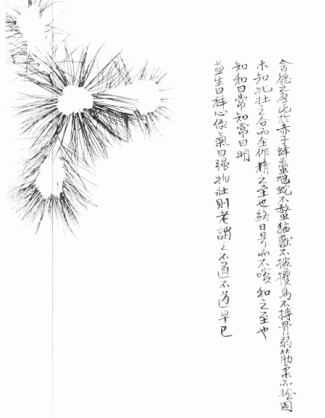 含德之厚比於赤子蜂蠆虺蛇不螫猛獸不據攫鳥不搏骨弱筋柔而握固
未知牝牡之合而全作精之至也終日号而不嗄和之至也
知和曰常知常曰明
益生曰祥心使氣曰强物壯則老謂之不道不道早已